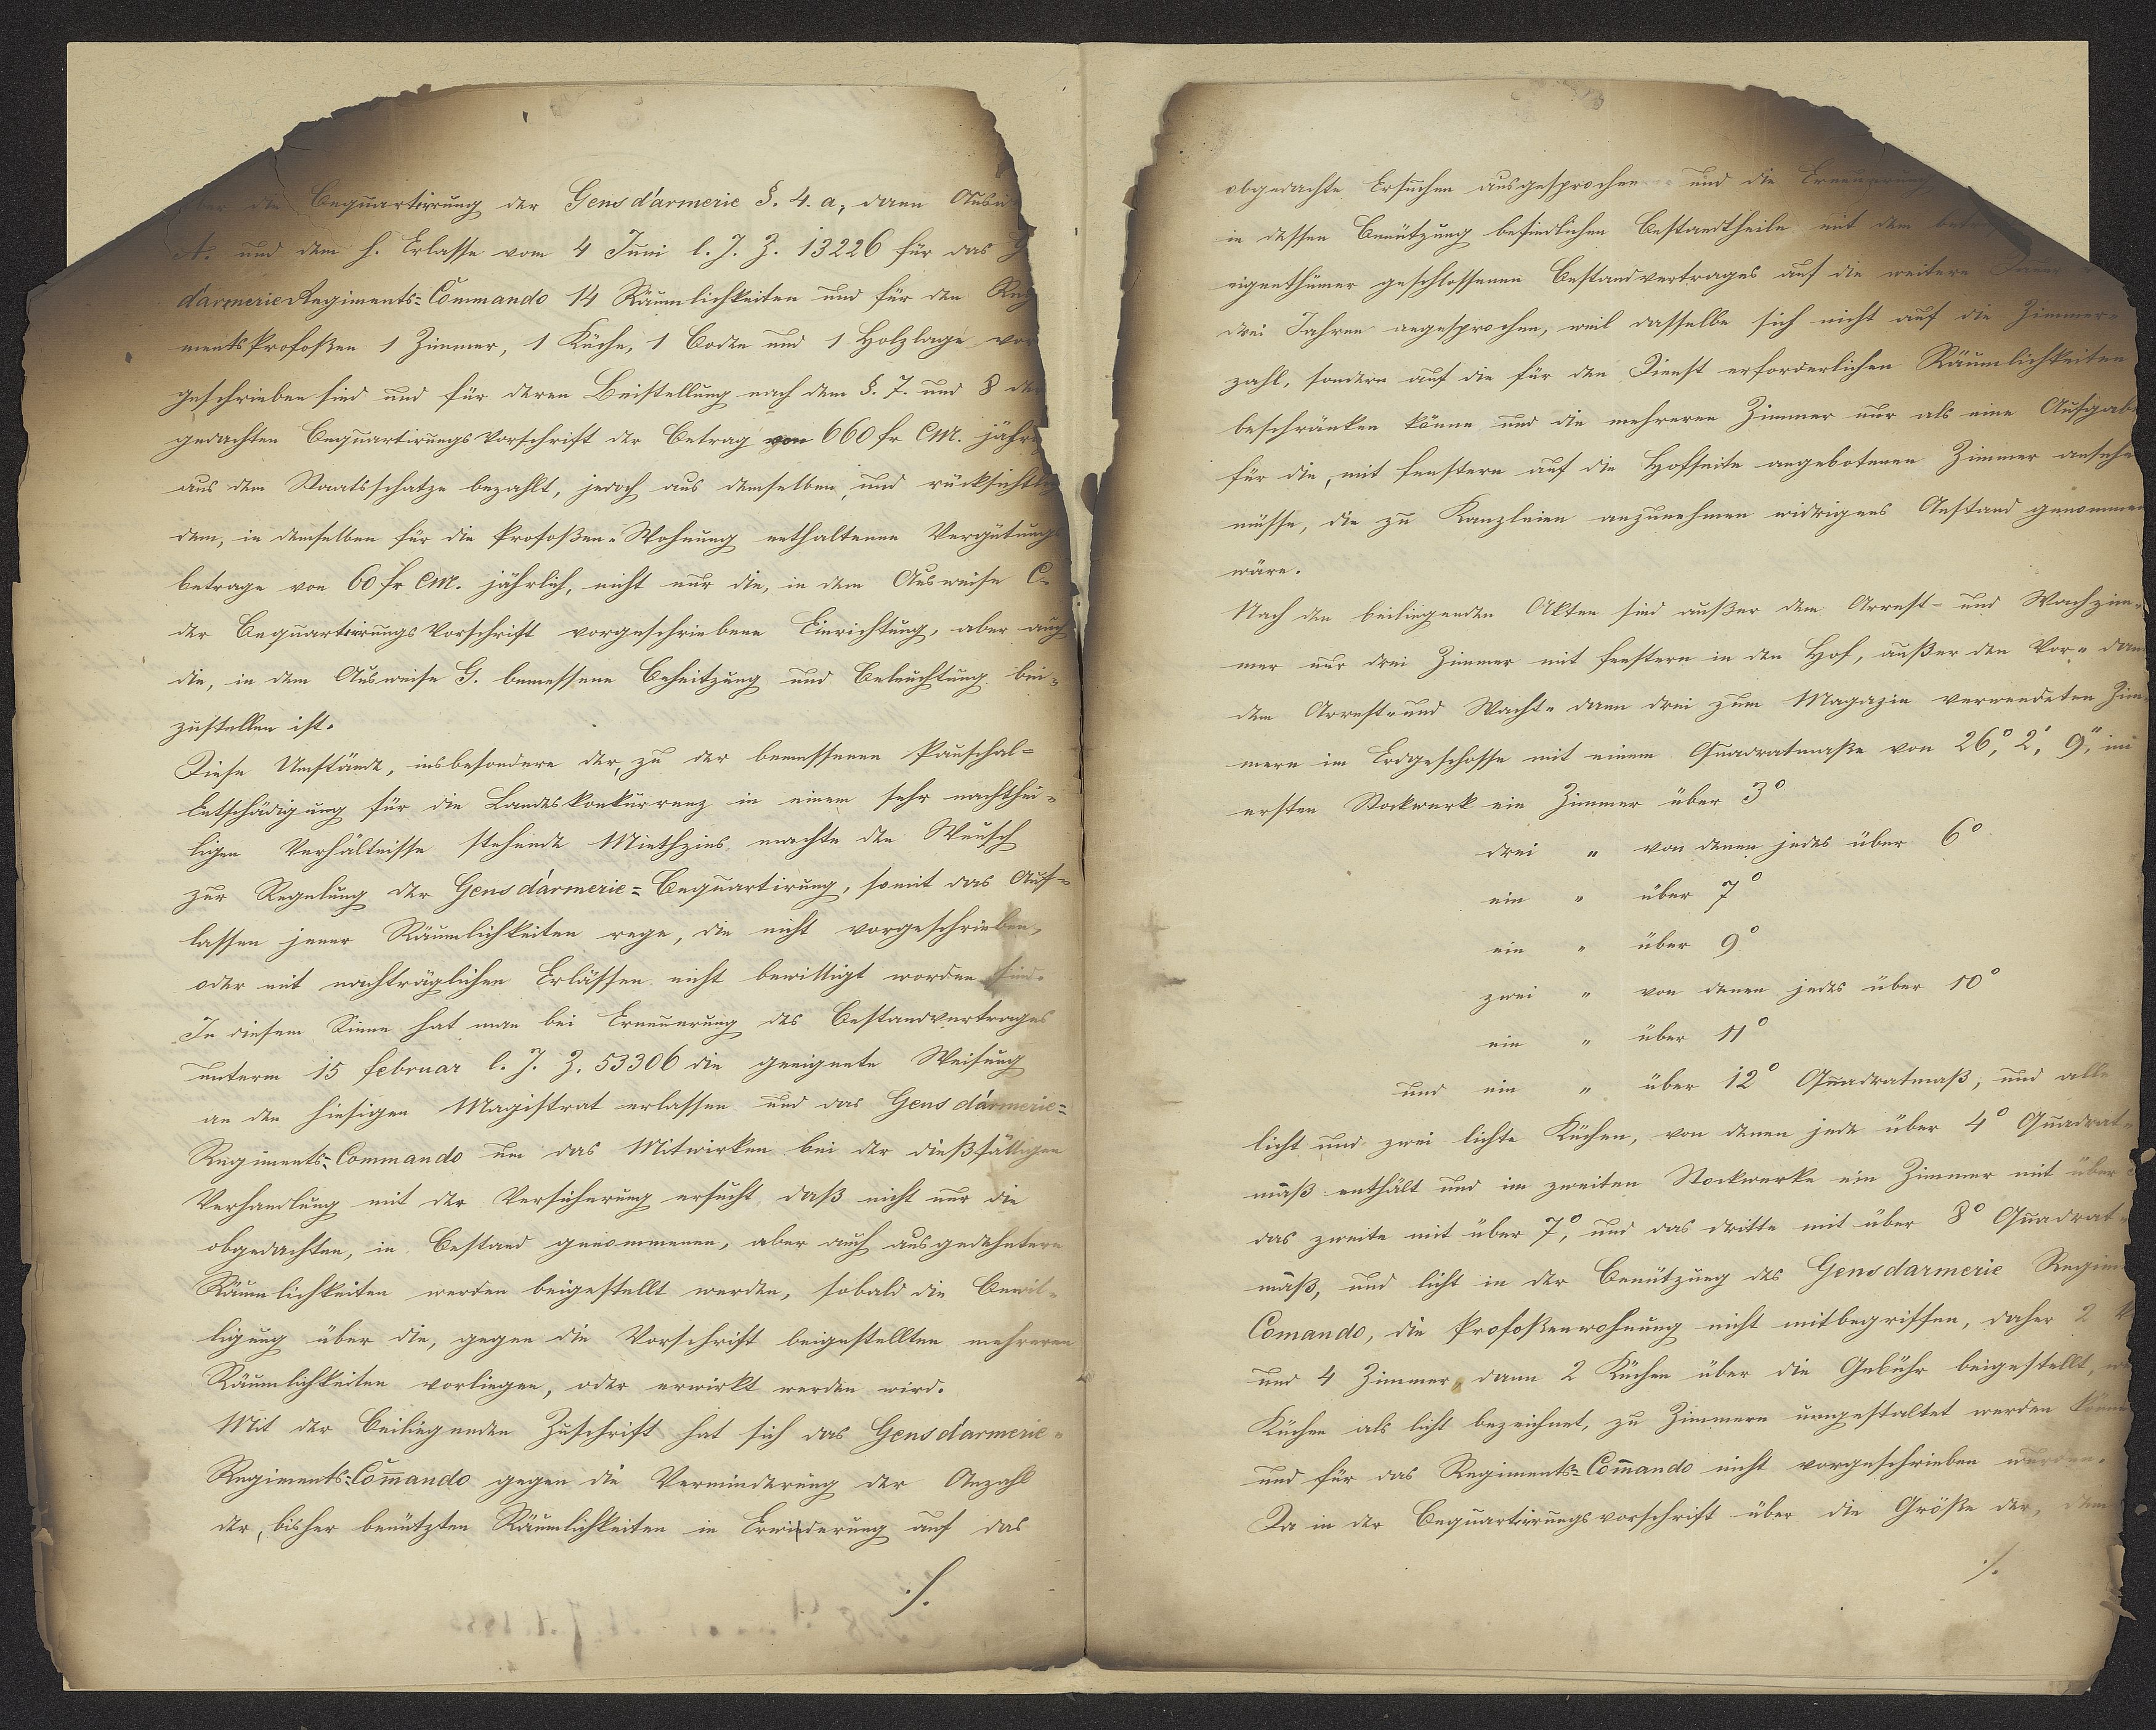 über die Bequartirrung der Gensd'armerie §. 4. a, dann
A. und dem h. Erlasse vom 4 Juni l. J. Z. 13226 für das
d'armerie Regiments-Commando 14 Räumlichkeiten und für den
ments Profoßen 1 Zimmer, 1 Küche, 1 Boden und 1 Holzlage vor
geschrieben sind und für deren Beistellung nach dem §. 7. und 8 der
gedachten Bequartirungs Vorschrift der Betrag von 660 fr CM. jähr
aus dem Staatsschatze bezahlt, jedoch aus demselben, und rücksichtlich
dem, in demselben für die Profoßen-Wohnung enthaltenen Vergütungs
betrage von 60 fr CM. jährlich, nicht nur die, in dem Ausweise C.
der Bequartirrungs Vorschrift vorgeschriebene Einrichtung, aber auch
die, in dem Ausweise G. bemessene Beheitzung und Beleuchtung bei-
zustellen ist.
Diese Umstände, insbesondere der, zu der bemessenen Pauschal-
Entschädigung für die Landeskonkurrenz in einem sehr nachthei-
ligen Verhältnisse stehende Miethzins machte den Wunsch
zur Regelung der Gensd'armerie-Bequartirung, somit das Auf-
lassen jener Räumlichkeiten rege, die nicht vorgeschrieben,
oder mit nachträglichen Erlässen nicht bewilligt worden sind.
In diesem Sinne hat man bei Erneuerung des Bestandvertrages
unterm 15 Februar l. J. Z. 53306 die geeignete Weisung
an den hiesigen Magistrat erlassen und das Gensd'armerie-
Regiments-Commando um das Mitwirken bei der dießfälligen
Verhandlung mit der Versicherung ersucht, daß nicht nur die
obgedachten, in Bestand genommenen, aber auch ausgedehntern
Räumlichkeiten werden beigestellt werden, sobald die Bewil-
ligung über die, gegen die Vorschrift beigestellten mehreren
Räumlichkeiten vorliegen, oder erwirkt werden wird.
Mit der beiliegenden Zuschrift hat sich das Gensdarmerie-
Regiments-Com̄ando gegen die Verminderung der Anzahl
der, bisher benützten Räumlichkeiten in Erwiederung auf das
./.
obgedachte Ersuchen ausgesprochen und die Erneuerung
in dessen Benützung befindlichen Bestandtheile mit dem
eigenthümer geschlossenen Bestandvertrages auf die weitere Dauer
drei Jahren angesprochen, weil dasselbe sich nicht auf die Zimmer-
zahl, sondern auf die für den Dienst erforderlichen Räumlichkeiten
beschränken könne und die mehreren Zimmer nur als eine Aufgabe
für die, mit Fenstern auf die Hofseite angebotenen Zimmer ansehen
müsse, die zu Kanzleien anzunehmen widrigens Anstand genommen
wäre.
Nach den beiliegenden Akten sind außer dem Arrest- und Wachzim-
mer nur drei Zimmer mit Fenstern in den Hof, außer den Vor- dann
dem Arrest- und Wacht- dann drei zum Magazin verwendeten Zim
mern im Erdgeschosse mit einem Quadratmaße von 26°, 2', 9", im
ersten Stockwerk ein Zimmer über 3°
drei " von denen jedes über 6°
ein " über 7°
ein " über 9°
zwei " von denen jedes über 10°
ein " über 11°
und ein " über 12° Quadratmaß, und alle
licht und zwei lichte Küchen, von denen jede über 4° Quadrat-
maß enthält und im zweiten Stockwerke ein Zimmer mit über
das zweite mit über 7°, und das dritte mit über 8° Quadrat-
maß, und licht in der Benützung des Gensdarmerie
Comando, die Profoßenwohnung nicht mitbegriffen, daher 2
und 4 Zimmer, dann 2 Küchen über die Gebühr beigestellt,
Küchen als licht bezeichnet, zu Zimmern umgestaltet werden können
und für das Regiments-Com̄ando nicht vorgeschrieben wurden.
Da in der Bequartirrungsvorschrift über die Größe der, dem
./.